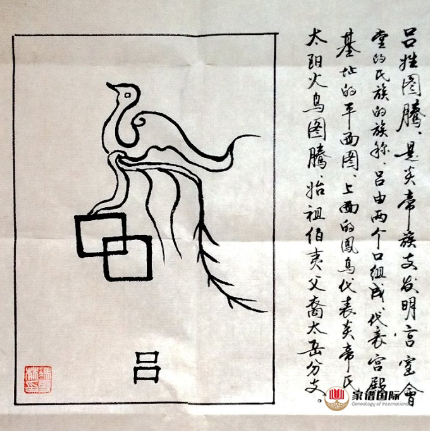 吕姓图腾，是炎帝族支发明宫室會
堂的氏族的族称。吕由两个口组成代表宫殿
基址的平面图，上面的凤鸟代表炎帝氏
太阳火鸟图腾。始祖伯夷父裔太岳分支。
吕
家谱国际
Genealogy of International